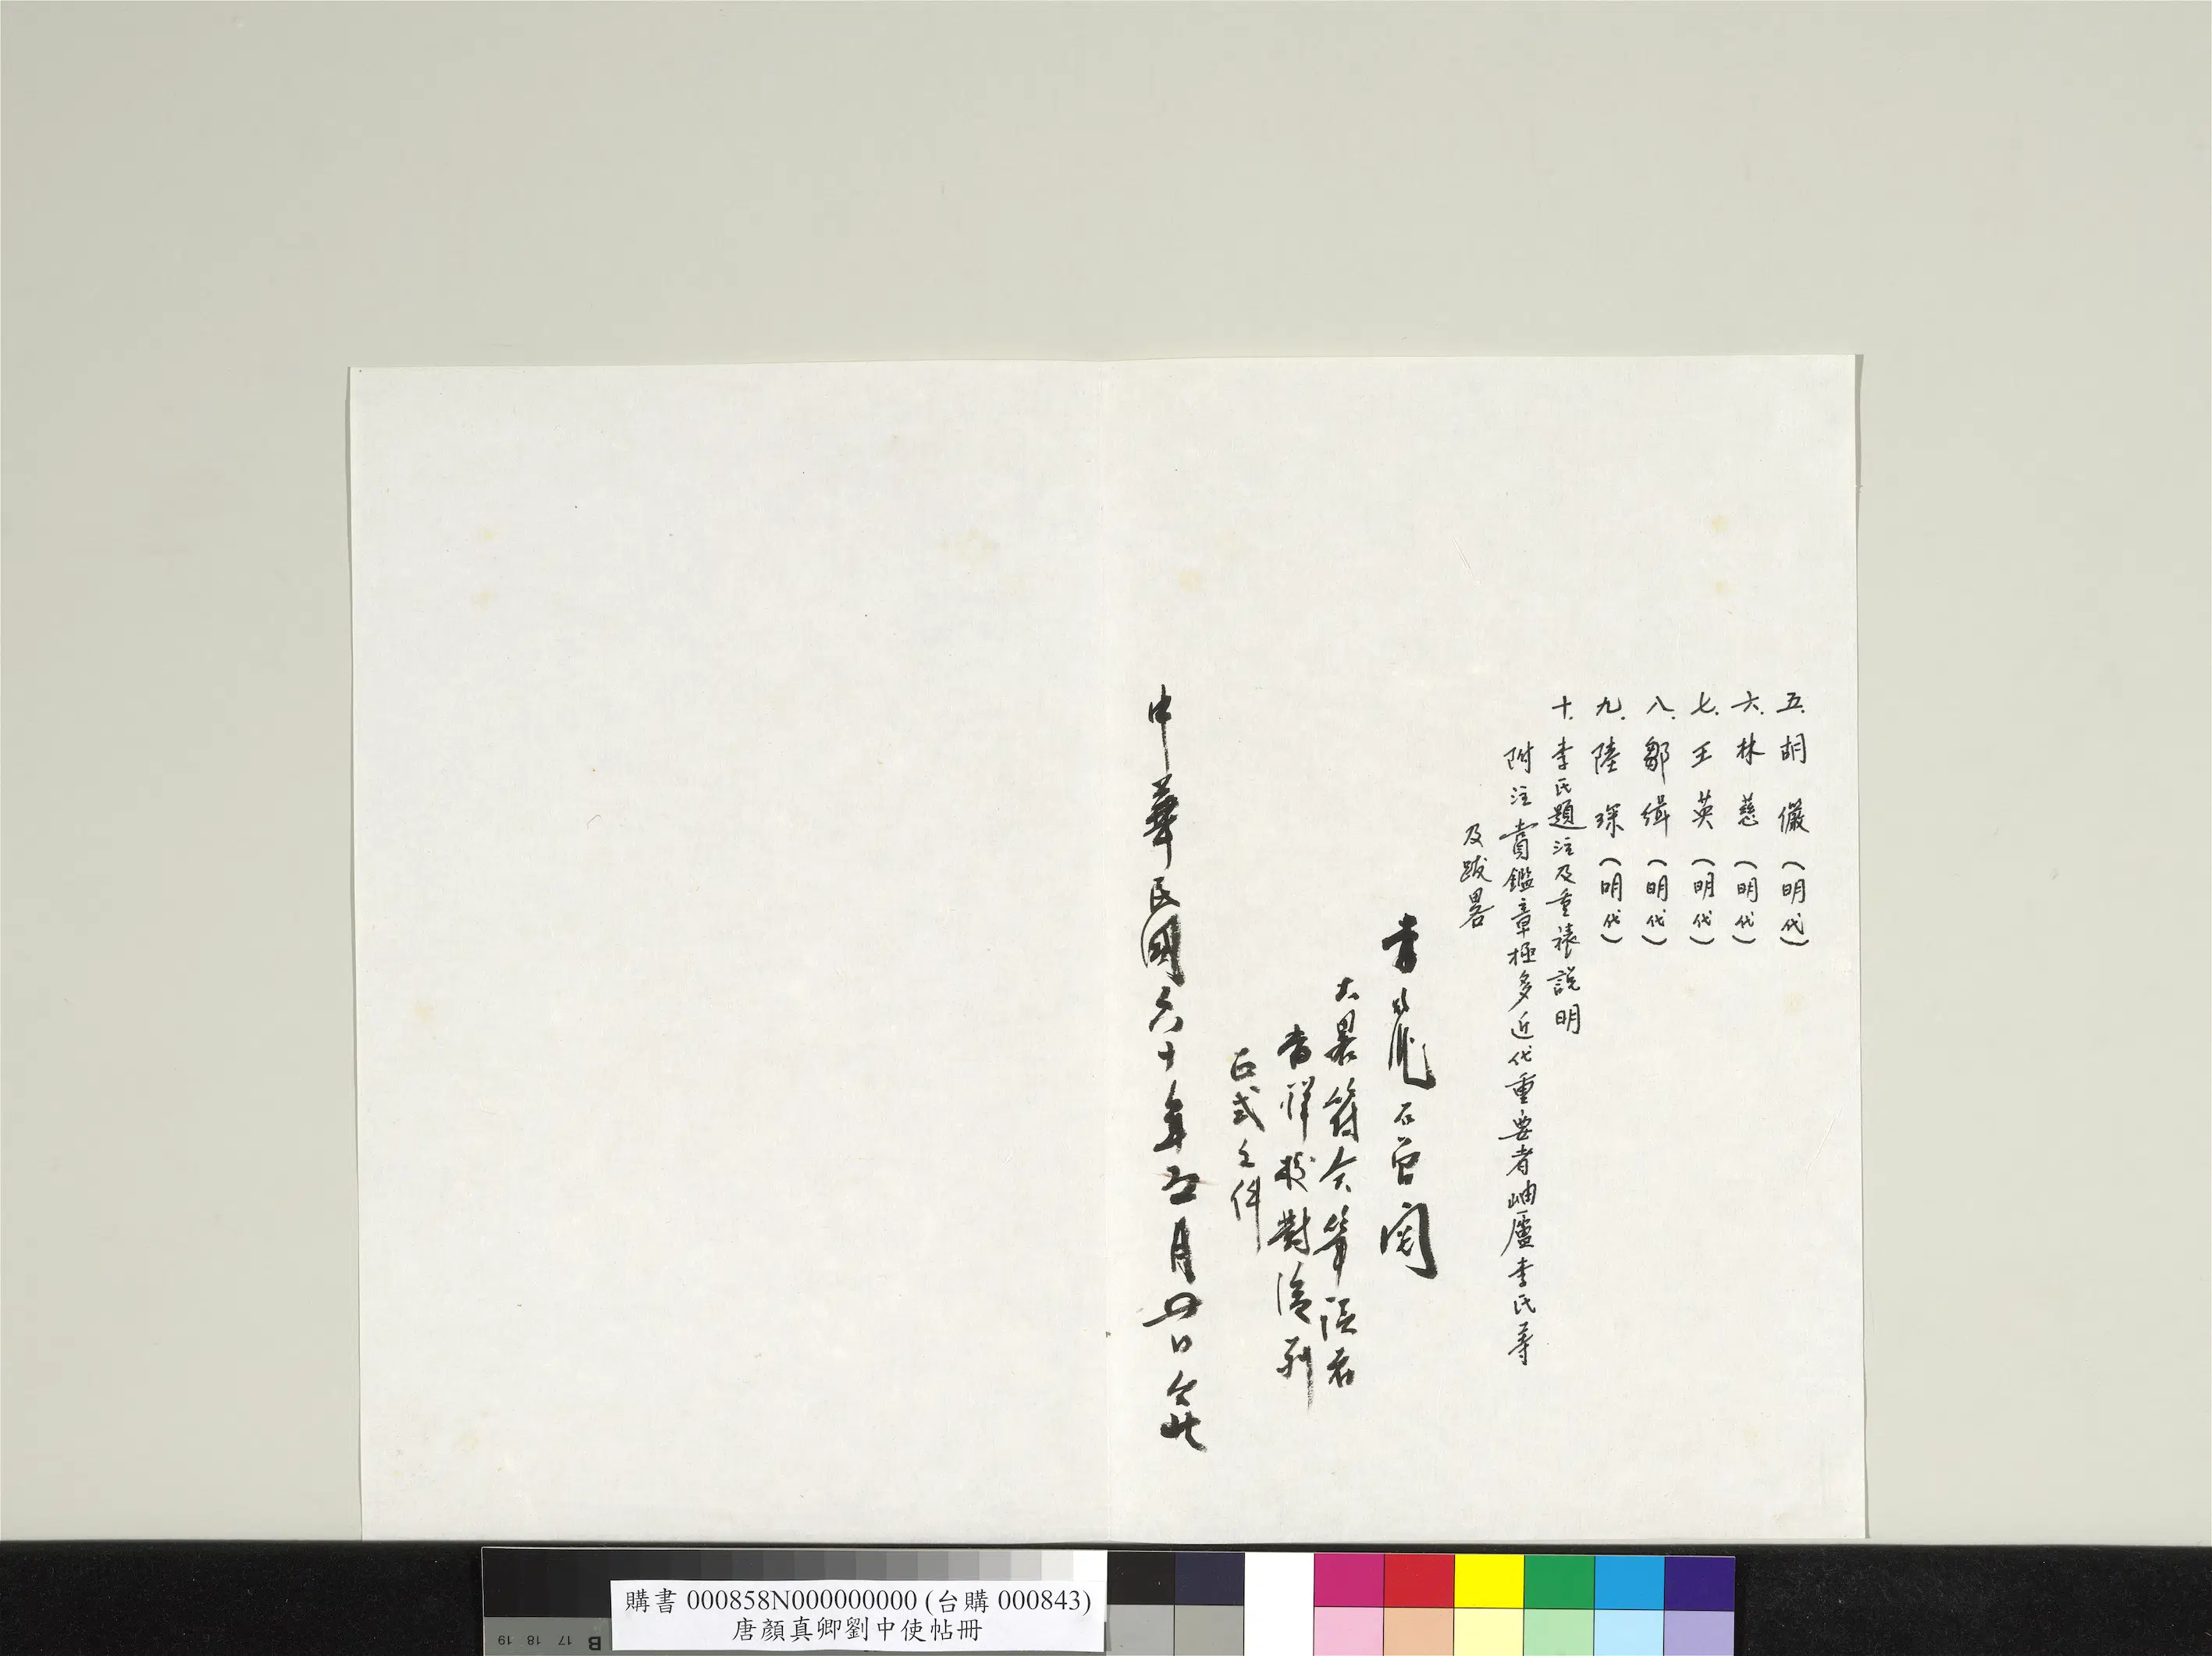 五.胡儼(明代)
六.林慈(明代)
七.王英(明代)
八.鄒緝(明代)
九.陸琛(明代)
十.李氏題注及重裱說明
附注賞鑑章極多近代重要者岫廬李氏等
及跋畧
李 石曾閱
大畧符合筆誤者
當詳校對後列
正式文件
中華民國六十年五月廿日台北
購書 000858N000000000 (台購 000843)
唐顏真卿劉中使帖冊
19 18 17 B